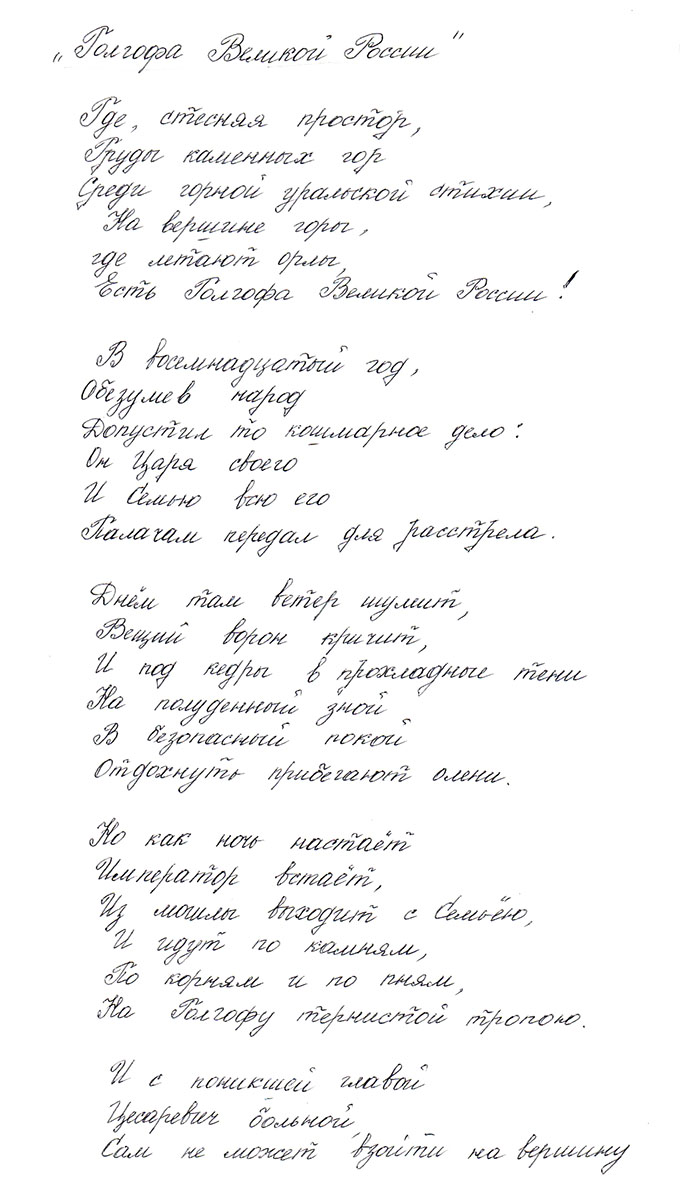 „Голгофа Великой России"
Где, стесняя простор,
Груды каменных гор
Среди горной уральской стихии,
На вершине горы,
где летают орлы,
Есть Голгофа Великой России!
В восемнадцатый год,
Обезумев народ
Допустил то кошмарное дело:
Он Царя своего
И Семью всю его
Палачам передал для расстрела.
Днём там ветер шумит,
Вещий ворон кричит,
И под кедры в прохладные тени
На полуденный зной
В безопасный покой
Отдохнуть прибегают олени.
Но как ночь настаёт
Император встаёт,
Из могилы выходит с Семьёю,
И идут по камням,
По корням и по пням,
На Голгофу тернистой тропою.
И с поникшей главой
Цесаревич больной,
Сам не может взойти на вершину